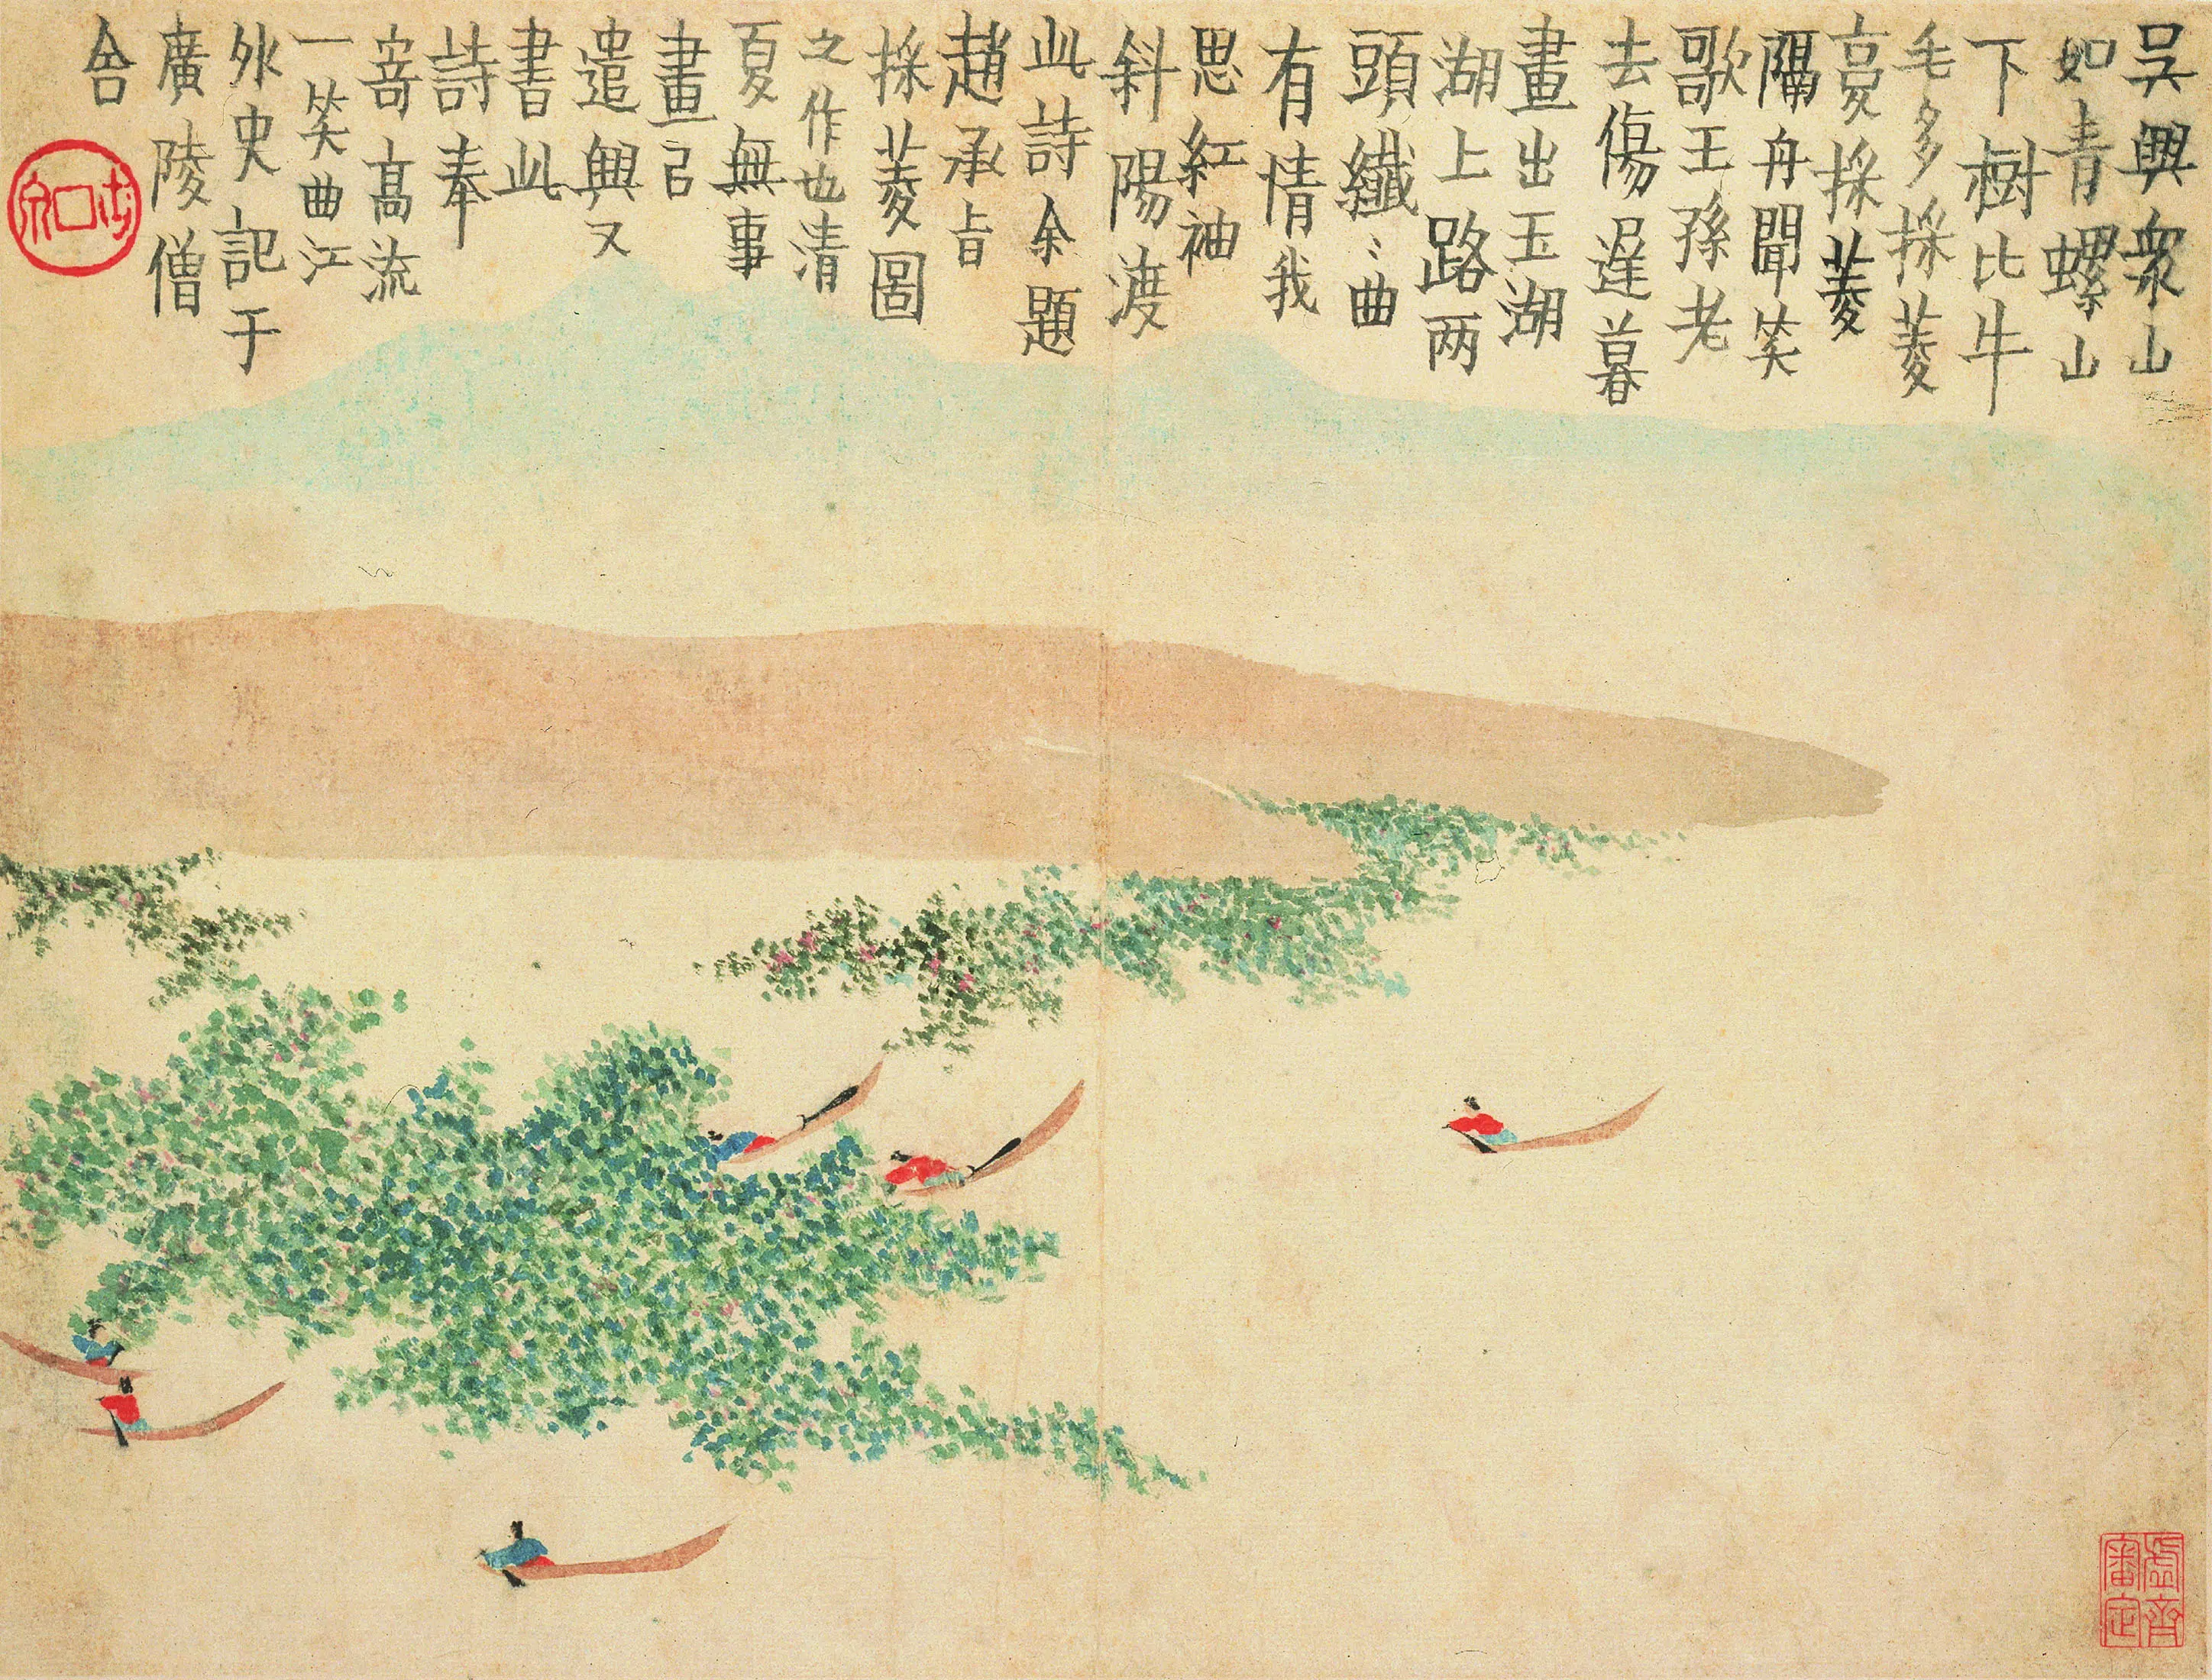 吳興衆山
如青螺山
下樹比牛
毛多採菱
亭採菱
隔舟聞笑
歌王孫老
去傷遲暮
畫出玉湖
湖上路两
頭纖〻曲
有情我
思紅袖
斜陽渡
此詩余題
趙承旨
採菱圖
之作也清
夏無事
畫㠯
遣興又
書此
詩奉
寄高流
一笑曲江
外史記于
廣陵僧
舍
虛齋
審定